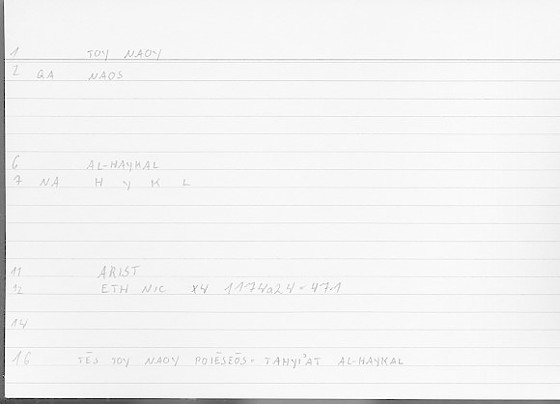 1 TOY NAOY
2 GA NAOS
6 AL-HAYKAL
7 NA H Y K L
11 ARIST
12 ETH NIC X4 1174a24 = 47.1
14
16 TĒS TOY NAOY POIĒSEŌS = TAHYI'AT AL-HAYKAL